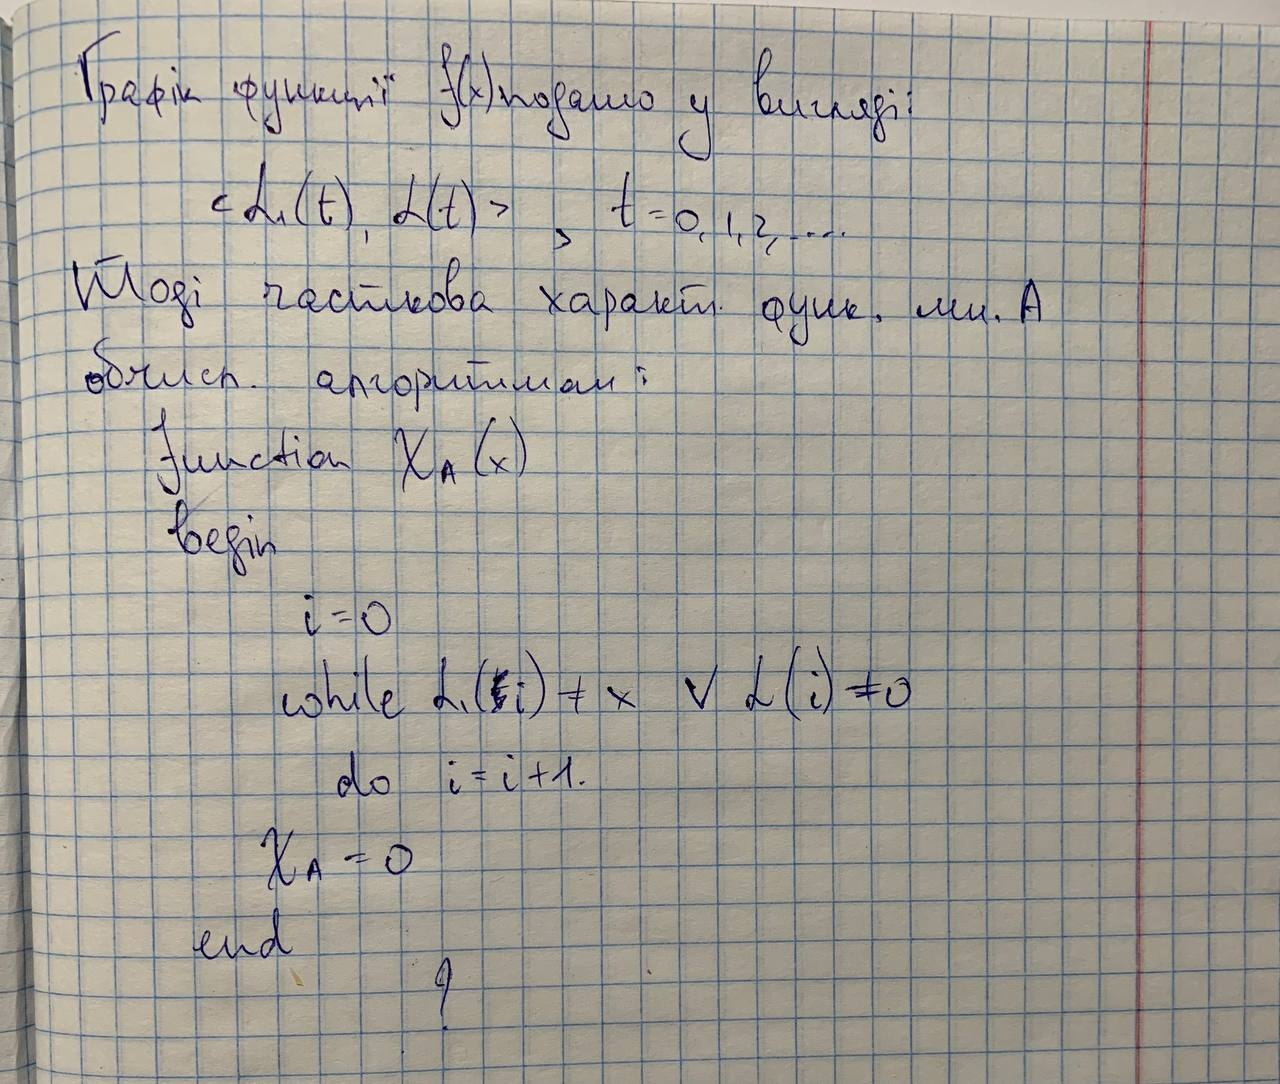 Графік функції f(x) подамо у вигляді:
<α₁(t), α(t)> , t = 0, 1, 2, ....
Тоді часткова характ. функ. мн. A
обчисл. алгоритмом:
function χ_A(x)
begin
i = 0
while α₁(i) ≠ x ∨ α(i) ≠ 0
do i = i + 1.
χ_A = 0
end
?